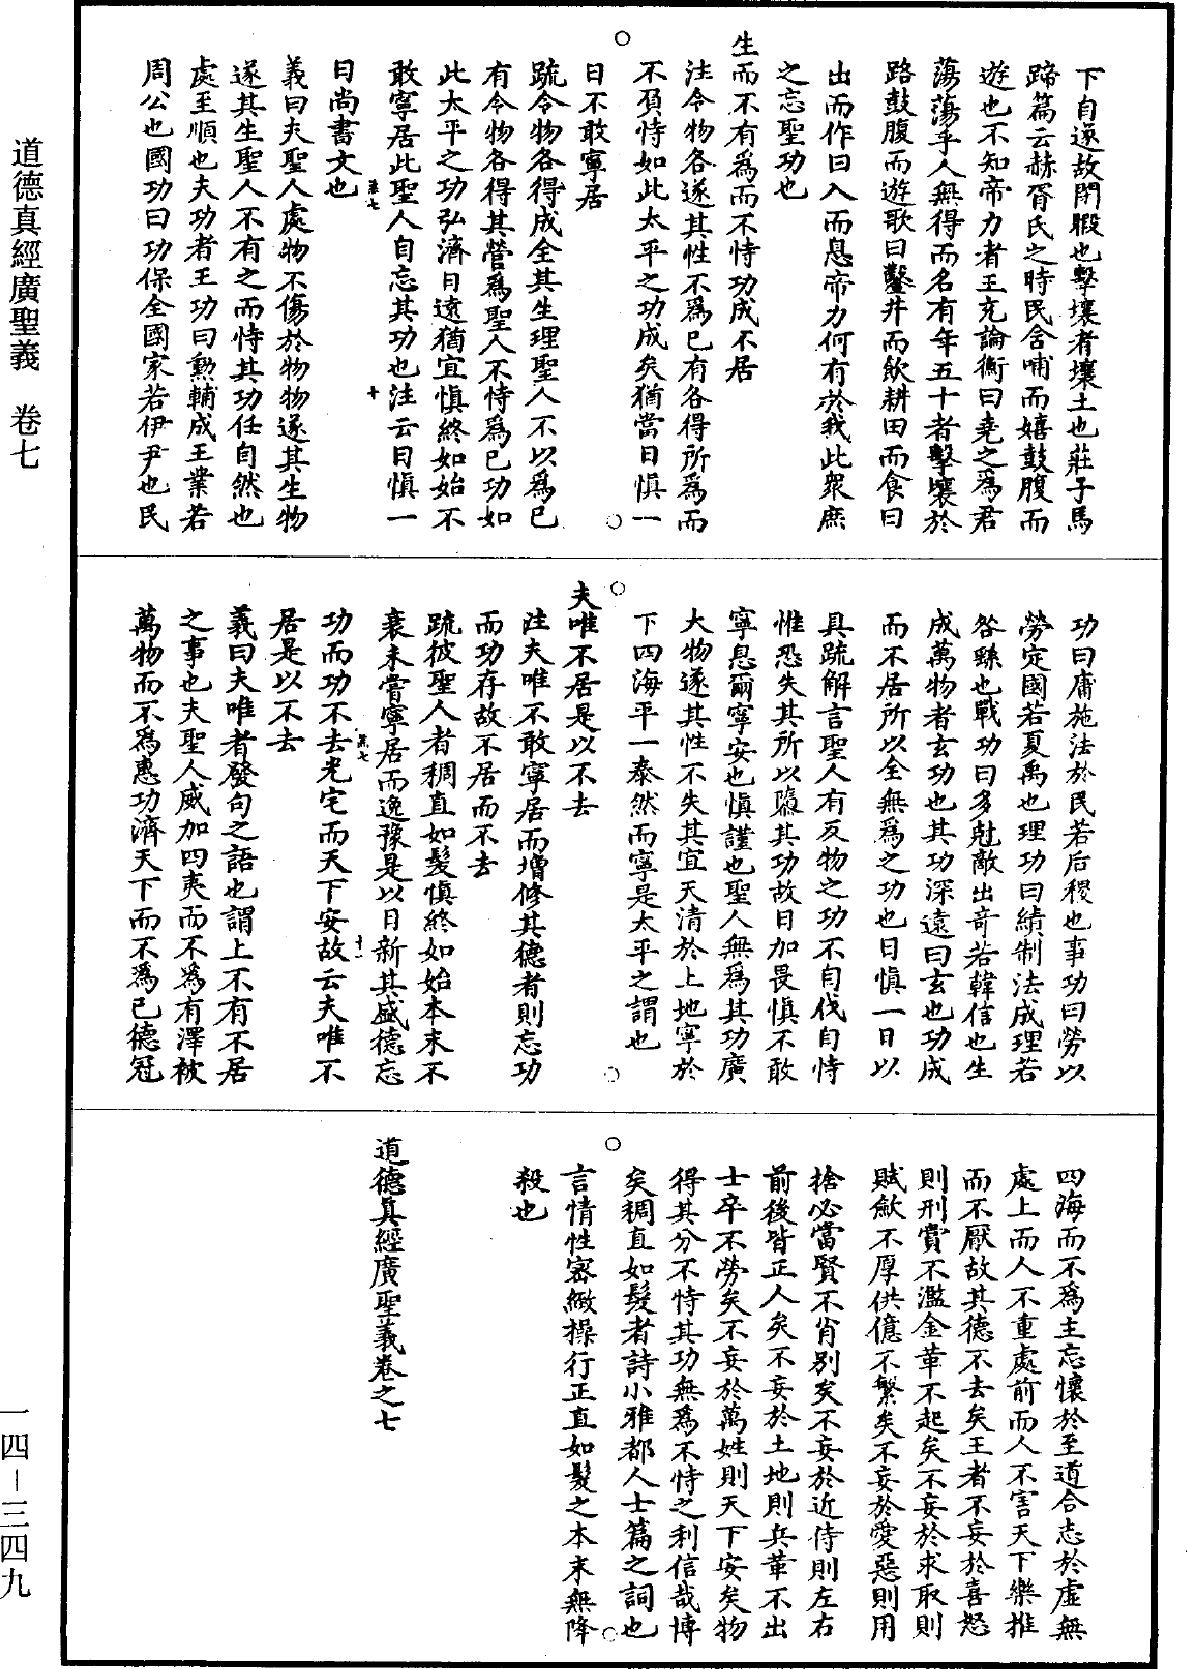 道德真經廣聖義　卷七
下自遂故閉暇也擊壤者壤土也莊子馬
蹄篇云赫胥氏之時民含哺而嬉鼓腹而
遊也不知帝力者王充論衡曰堯之為君
蕩蕩乎人無得而名有年五十者擊壤於
路鼓腹而遊歌曰鑿井而飲耕田而食日
出而作日入而息帝力何有於我此眾庶
之忘聖功也
生而不有為而不恃功成不居
注令物各遂其性不為已有各得所為而
不負恃如此太平之功成矣猶當日慎一
日不敢寧居
疏令物各得成全其生理聖人不以為已
有令物各得其營為聖人不恃為已功如
此太平之功弘濟日遠猶宜慎終如始不
敢寧居此聖人自忘其功也注云日慎一
第七　十
日尚書文也
義曰夫聖人處物不傷於物物遂其生物
遂其生聖人不有之而恃其功任自然也
處至順也夫功者王功曰勲輔成王業若
周公也國功曰功保全國家若伊尹也民
功曰庸施法於民若后稷也事功曰勞以
勞定國若夏禹也理功曰績制法成理若
咎繇也戰功曰多尅敵出奇若韓信也生
成萬物者玄功也其功深遠曰玄也功成
而不居所以全無為之功也日慎一日以
具疏解言聖人有及物之功不自伐自恃
惟恐失其所以隳其功故日加畏慎不敢
寧息爾寧安也慎謹也聖人無為其功廣
大物遂其性不失其宜天清於上地寧於
下四海平一泰然而寧是太平之謂也
夫唯不居是以不去
注夫唯不敢寧居而增修其德者則忘功
而功存故不居而不去
疏彼聖人者稠直如髮慎終如始本末不
衰未嘗寧居而逸豫是以日新其盛德忘
第七　十一
功而功不去光宅而天下安故云夫唯不
居是以不去
義曰夫唯者發句之語也謂上不有不居
之事也夫聖人威加四夷而不為有澤被
萬物而不為惠功濟天下而不為已德冠
四海而不為主忘懷於至道合志於虛無
處上而人不重處前而人不害天下樂推
而不厭故其德不去矣王者不妄於喜怒
則刑賞不濫金革不起矣不妄於求取則
賦斂不厚供億不繁矣不妄於愛惡則用
捨必當賢不肖別矣不妄於近侍則左右
前後皆正人矣不妄於土地則兵革不出
士卒不勞矣不妄於萬姓則天下安矣物
得其分不恃其功無為不恃之利信哉博
矣稠直如髮者詩小雅都人士篇之詞也
言情性密緻操行正直如髮之本末無降
殺也
道德真經廣聖義卷之七
一四－三四九